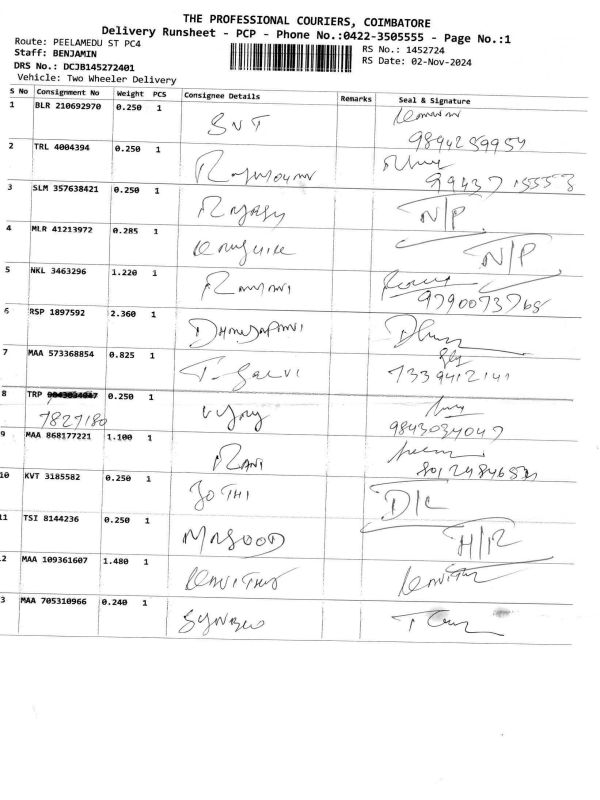 THE PROFESSIONAL COURIERS, COIMBATORE
Delivery Runsheet - PCP - Phone No.:0422-3505555 - Page No.:1
Route: PEELAMEDU ST PC4
Staff: BENJAMIN
DRS No.: DCJB145272401
Vehicle: Two Wheeler Delivery
RS No.: 1452724
RS Date: 02-Nov-2024
S No Consignment No Weight PCS Consignee Details Remarks Seal & Signature
1 BLR 210692970 0.250 1 SNT
9894259954
2 TRL 4004394 0.250 1
9943715553
3 SLM 357638421 0.250 1 N/P
4 MLR 41213972 0.285 1 N/P
5 NKL 3463296 1.220 1 Ramani
9790073768
6 RSP 1897592 2.360 1
7 MAA 573368854 0.825 1 T. Selvi 7339412141
8 TRP 0.250 1 Vijay
7827180 9843034047
9 MAA 868177221 1.100 1 RANI 8012484654
10 KVT 3185582 0.250 1 JOTHI D/L
11 TSI 8144236 0.250 1 MASOOD H/R
12 MAA 109361607 1.480 1 Kavitha Kavitha
3 MAA 705310966 0.240 1